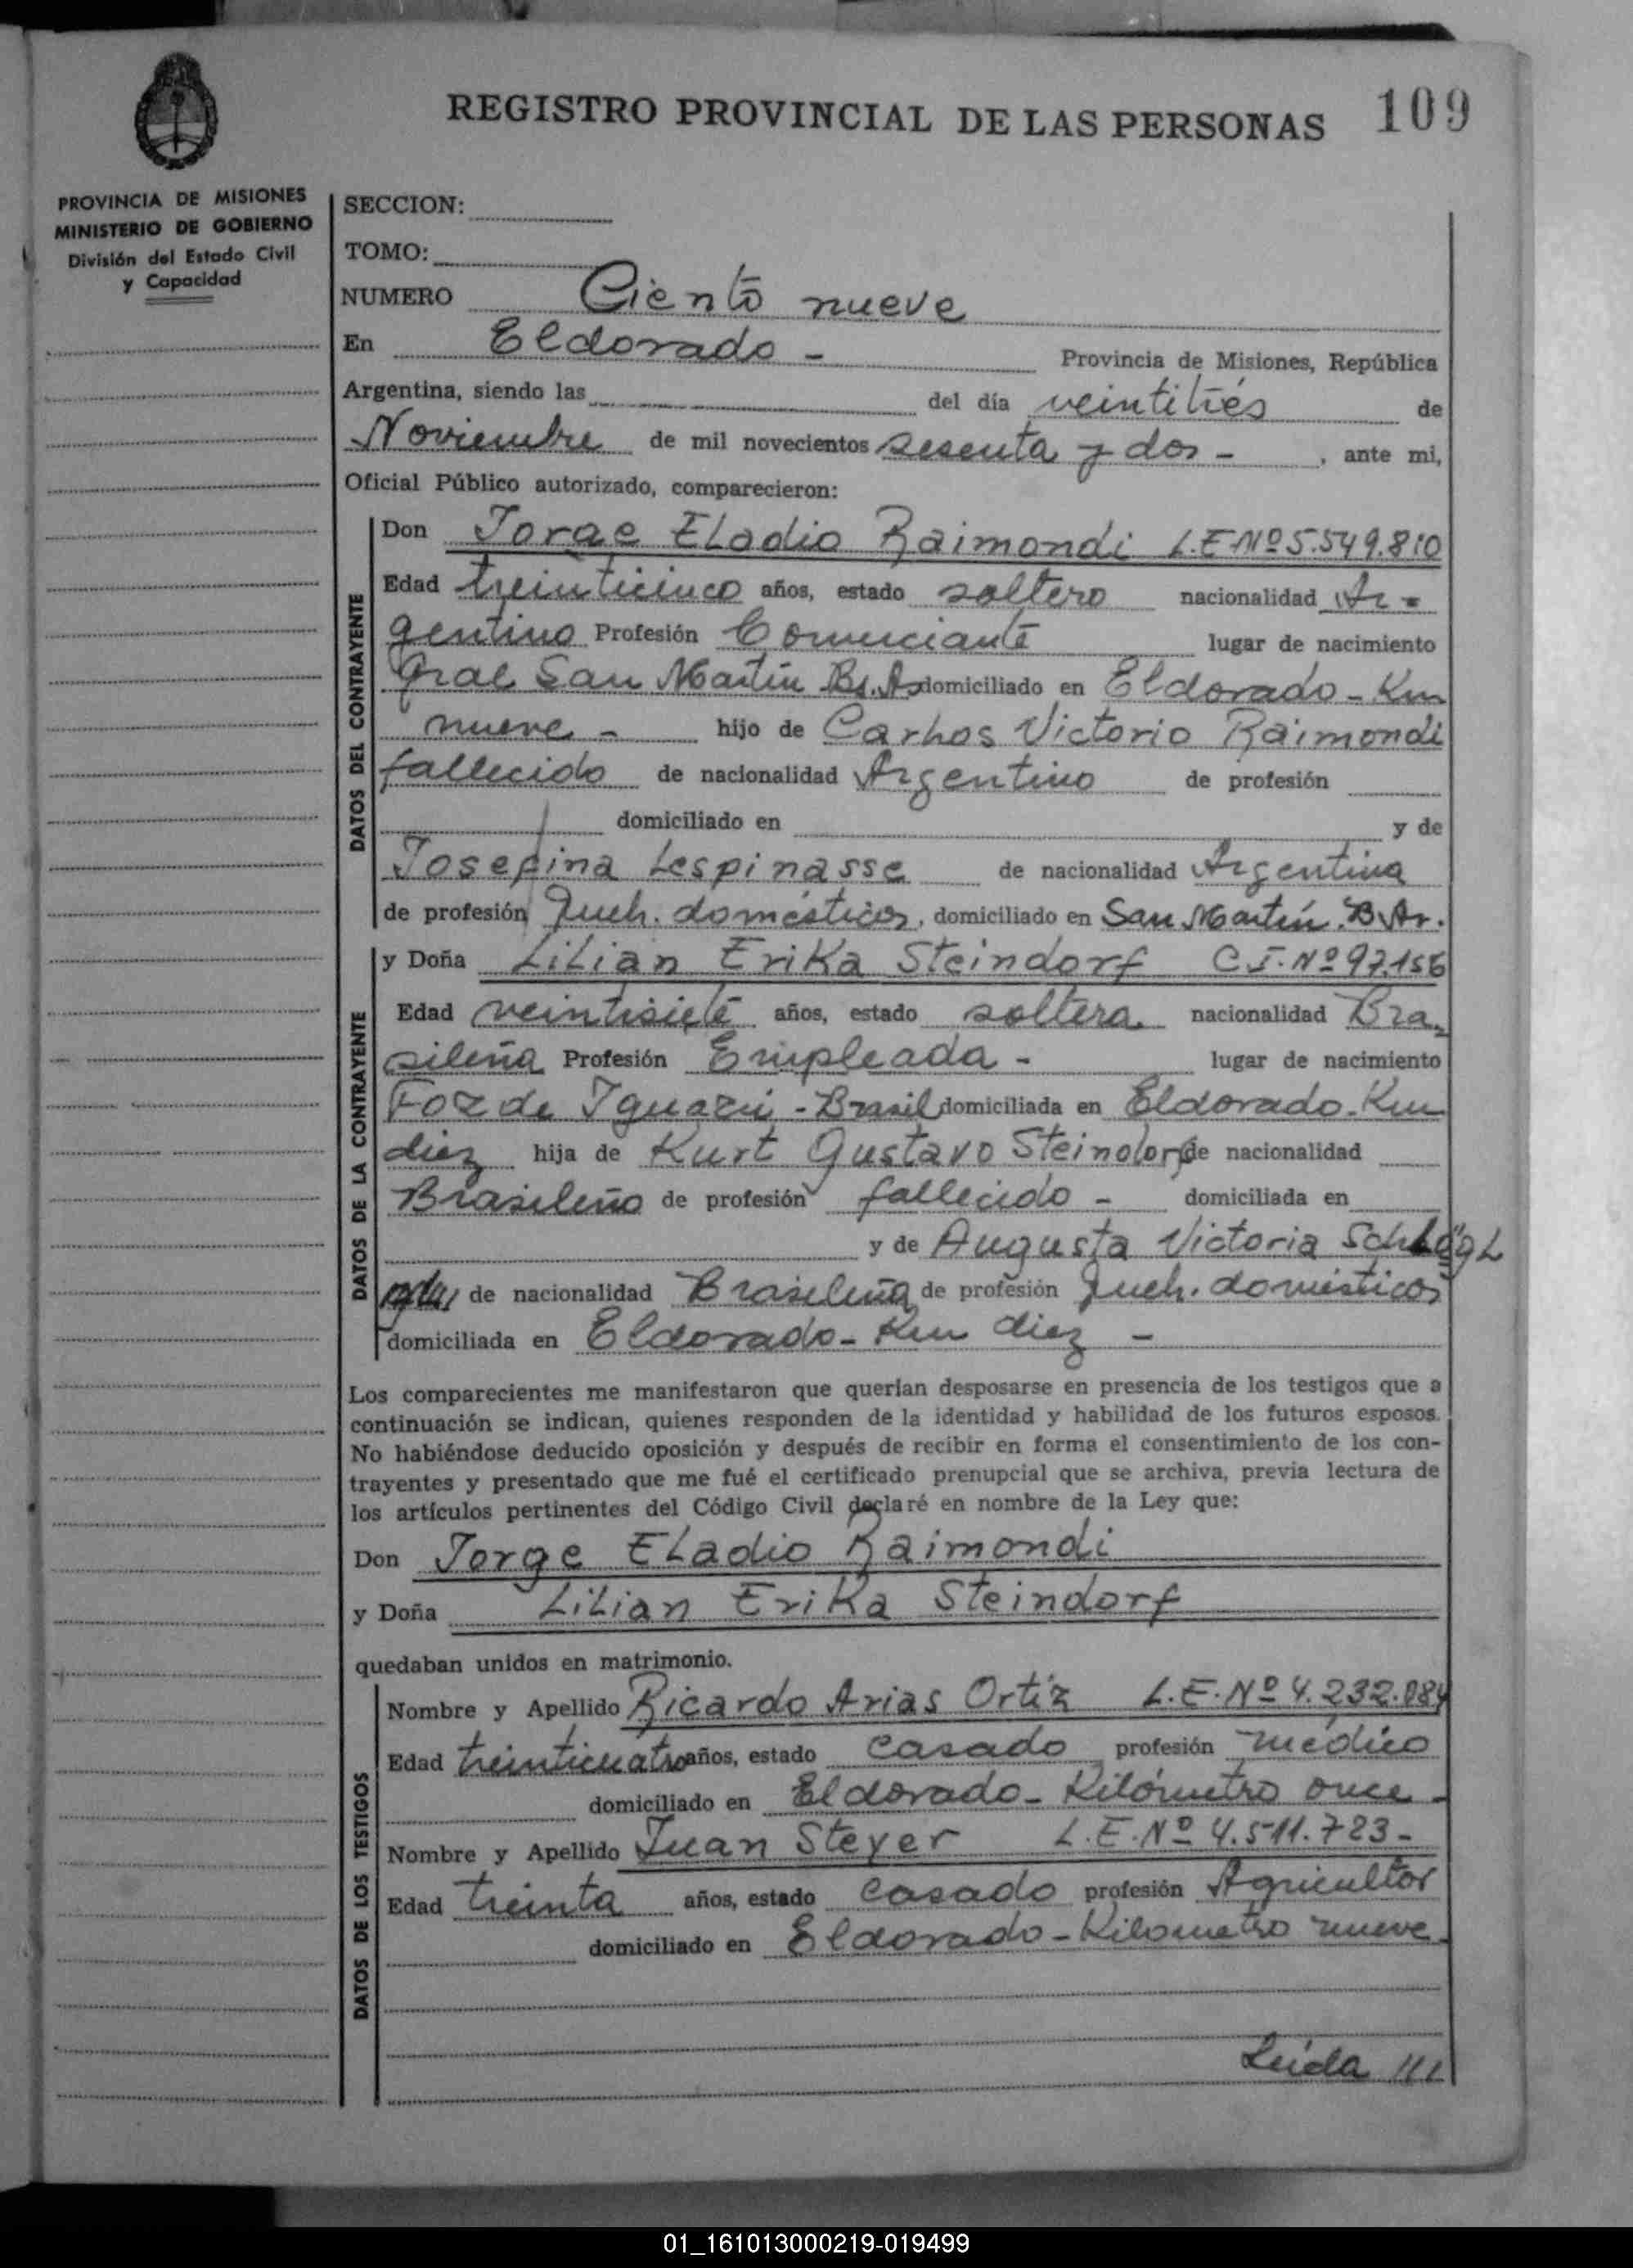 REGISTRO PROVINCIAL DE LAS PERSONAS 109
PROVINCIA DE MISIONES
MINISTERIO DE GOBIERNO
División del Estado Civil
y Capacidad
SECCION:
TOMO:
NUMERO Ciento nueve
En Eldorado - Provincia de Misiones, República
Argentina, siendo las del día veintitrés de
Noviembre de mil novecientos sesenta y dos - , ante mi,
Oficial Público autorizado, comparecieron:
DATOS DEL CONTRAYENTE
Don Jorge Eladio Raimondi L.E Nº 5.549.810
Edad treinticinco años, estado soltero nacionalidad Ar-
gentino Profesión Comerciante lugar de nacimiento
Gral San Martín Bs. As domiciliado en Eldorado - Km
nueve - hijo de Carlos Victorio Raimondi
fallecido de nacionalidad Argentino de profesión
domiciliado en y de
Josefina Lespinasse de nacionalidad Argentina
de profesión Queh. domésticos, domiciliado en San Martín. B. Ar.
DATOS DE LA CONTRAYENTE
y Doña Lilian Erika Steindorf C.I. Nº 97.156
Edad veintisiete años, estado soltera nacionalidad Bra-
sileña Profesión Empleada - lugar de nacimiento
Foz de Iguazú - Brasil domiciliada en Eldorado - Km
diez hija de Kurt Gustavo Steindorf de nacionalidad
Brasileño de profesión fallecido - domiciliada en
y de Augusta Victoria Schlögl
de nacionalidad Brasileña de profesión Queh. domésticos
domiciliada en Eldorado - Km diez -
Los comparecientes me manifestaron que querían desposarse en presencia de los testigos que a
continuación se indican, quienes responden de la identidad y habilidad de los futuros esposos.
No habiéndose deducido oposición y después de recibir en forma el consentimiento de los con-
trayentes y presentado que me fué el certificado prenupcial que se archiva, previa lectura de
los artículos pertinentes del Código Civil declaré en nombre de la Ley que:
Don Jorge Eladio Raimondi
y Doña Lilian Erika Steindorf
quedaban unidos en matrimonio.
DATOS DE LOS TESTIGOS
Nombre y Apellido Ricardo Arias Ortiz L.E. Nº 4.232.084
Edad treinticuatro años, estado casado profesión médico
domiciliado en Eldorado - Kilómetro once -
Nombre y Apellido Juan Steyer L.E. Nº 4.511.723 -
Edad treinta años, estado casado profesión Agricultor
domiciliado en Eldorado - Kilometro nueve.
Leída ///
01_161013000219-019499